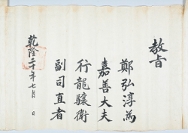 教旨
鄭弘淳爲
嘉善大夫
行龍驤衛
副司直者
乾隆二十年七月 日